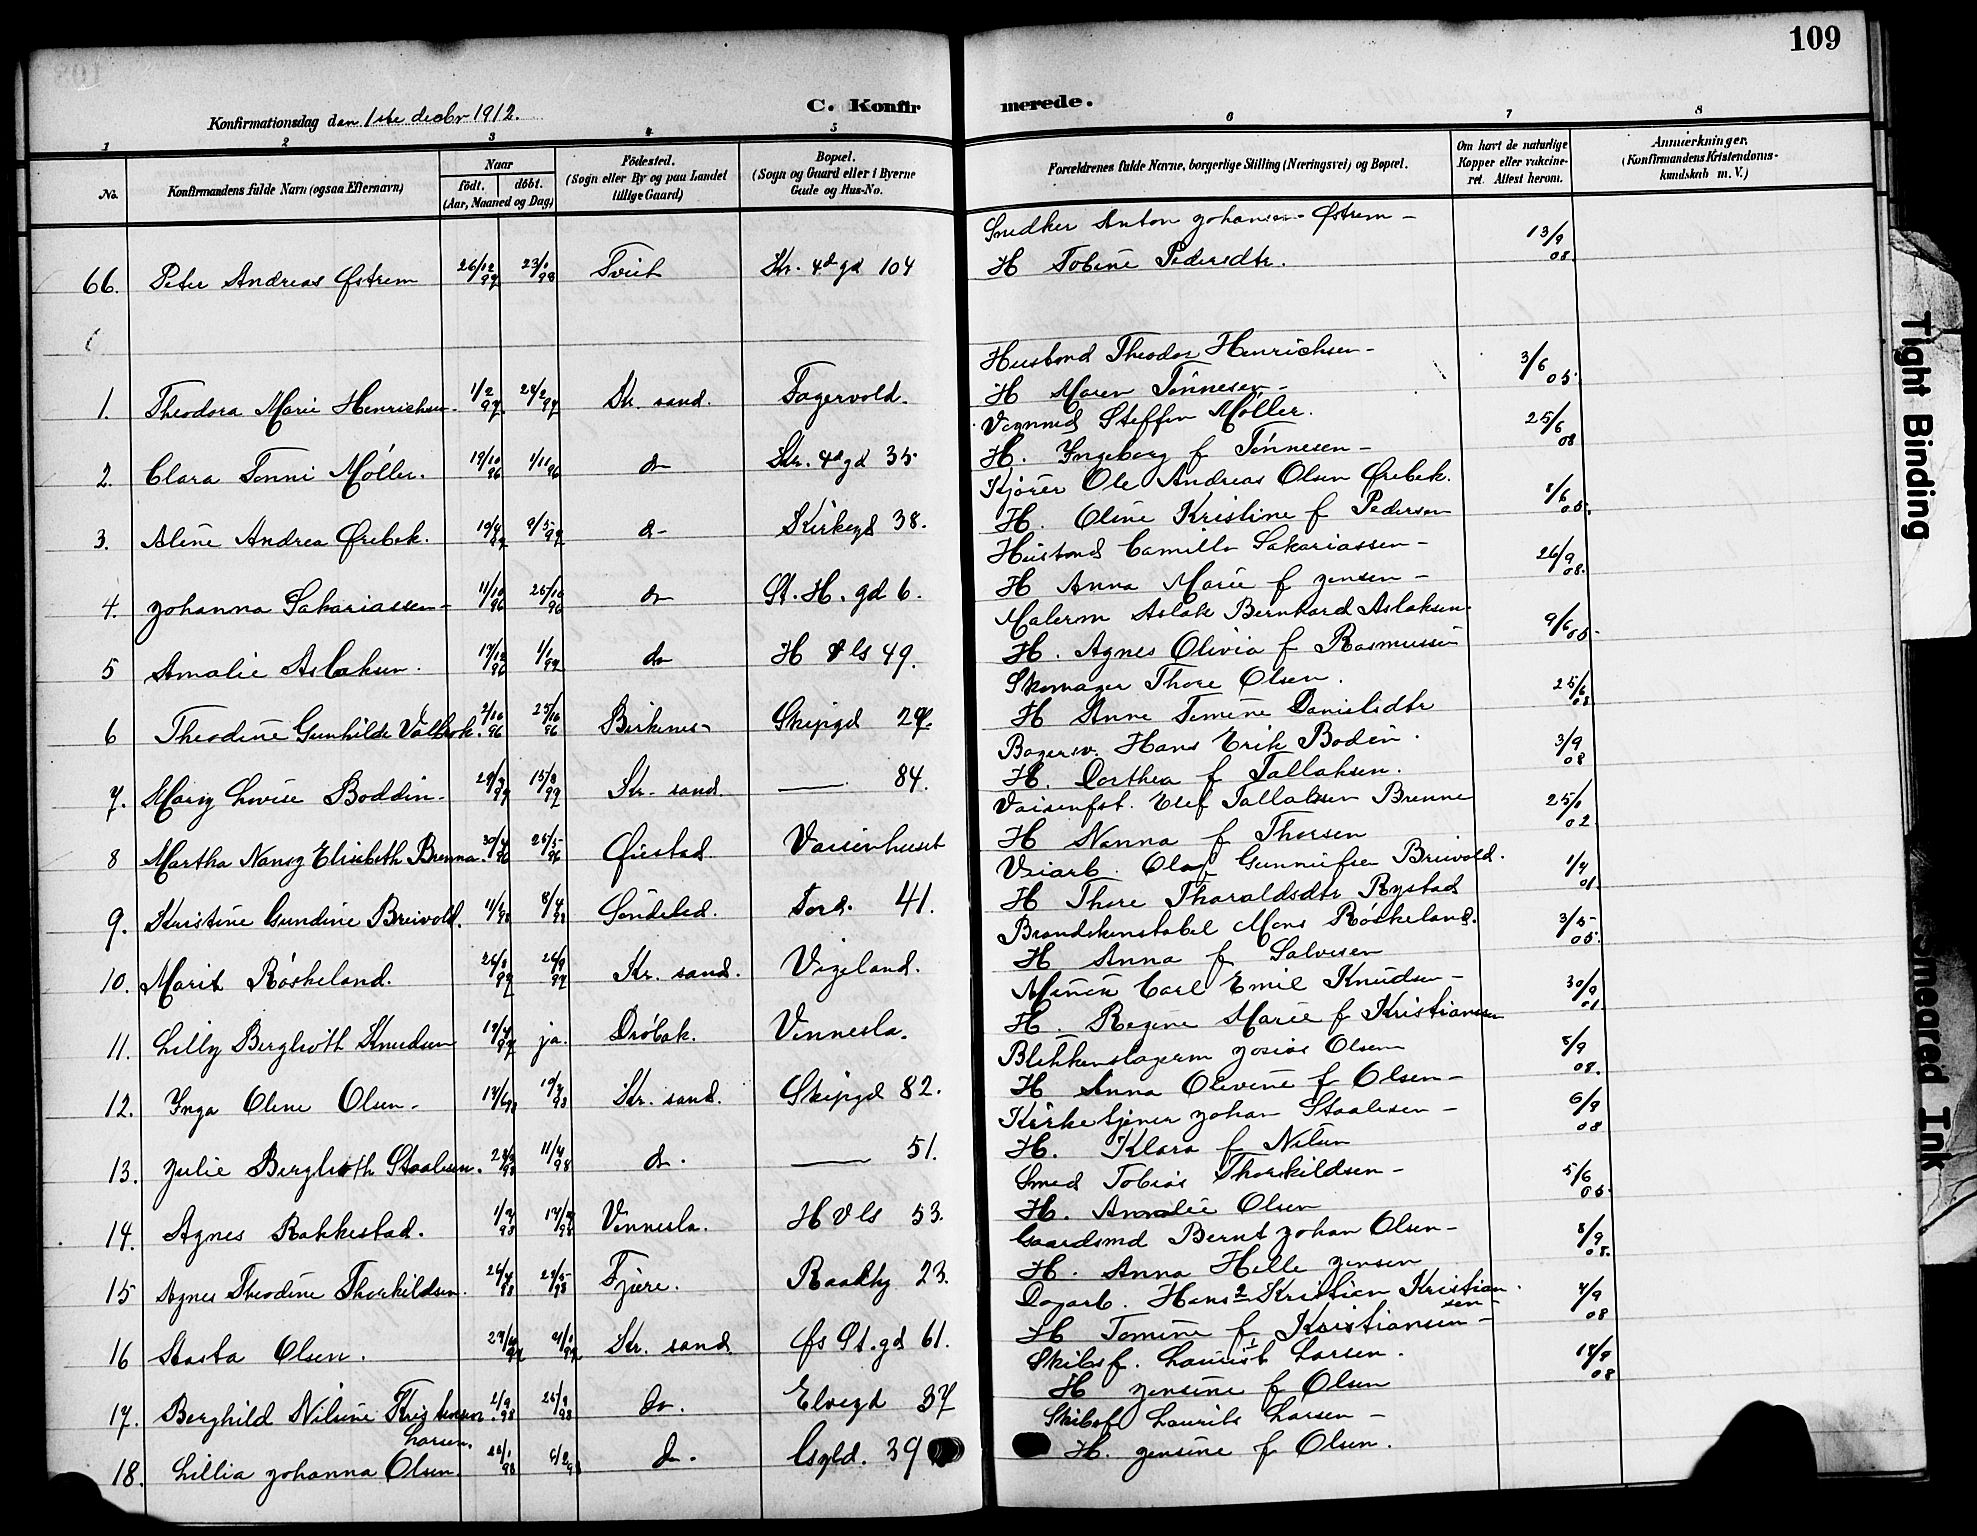 109
C. Konfirmerede.
Konfirmationsdag den 1ste decbr 1912.
1 2 3 4 5 6 7 8
No. Konfirmandens fulde Navn (ogsaa Efternavn) Naar født. døbt. (Aar, Maaned og Dag) Fødested. (Sogn eller By og paa Landet tillige Gaard) Bopæl. (Sogn og Gaard eller i Byerne Gade og Hus-No. Forældrenes fulde Navne, borgerlige Stilling (Næringsvei) og Bopæl. Om havt de naturlige Kopper eller vakcineret. Attest herom. Anmærkninger. (Konfirmandens Kristendomskundskab m. V.)
Snedker Anton Johansen Østrem -
66. Peter Andreas Østrem 26/12 97 23/1 98 Tveit Kr. 4de gd 104 H Tobine Pedersdtr. 13/9 08
Husbond Theodor Henrichsen -
1. Theodora Marie Henrichsen. 1/2 97 28/2 97 Kr. sand. Fagervold. H Maren Tønnesen - 3/6 05.
Vognmd Steffen Møller.
2. Clara Tonni Møller. 19/10 96 1/11 96 do Kr. 4de gd 35 H. Ingeborg f Tønnesen - 25/6 08
Kjører Ole Andreas Olsen Ørebek.
3. Aline Andrea Ørebek. 19/4 97 9/5 97 do Kirkegd 38. H. Oline Kristine f Pedersen 8/6 05.
Husbond Camillo Sakariassen -
4. Johanna Sakariassen - 11/10 96 25/10 96 do St. H. gd 6. H Anna Marie f Jensen - 26/9 08.
Malerm Aslak Bernhard Aslaksen.
5 Amalie Aslaksen. 17/12 96 1/1 97 do H V ls 49. H. Agnes Olivia f Rasmussen 9/6 05
Skomager Thore Olsen.
6 Theodine Gunhilde Valbrok. 2/10 96 25/10 96 Birkenes Skipgd H Anne Tomine Danielsdtr 25/6 08
Bagersv. Hans Erik Bodin.
7. Mary Lovise Boddin. 15/8 97 Kr. sand. — 84. H. Dorthea f Tallaksen. 3/9 08
Vaisenfst. Elef Tallaksen Brenne
8 Martha Nancy Elisabeth Brenna. 30/4 96 Øiestad. Vaisenhuset H Nanna f Thorsen 02
Veiarb. Olaf Gunnufsen Breivold.
9. Kristine Gundine Breivold. 8/4 98 Søndeled. Tord. 41. H Thore Tharaldsdtr Rystad 1/7 01.
Brandkonstabel Mons Røskeland.
10. Marit Røskeland. 97 26/9 97 Kr. sand. Vigeland. H Anna f Salvesen 3/5 05.
Carl Emil Knudsen -
11. Lilly Berglioth Knudsen 19/4 97 ja. Drøbak. Vennesla. H. Regine Marie f Kristiansen 30/9 01.
Blikkenslagerm Josias Olsen
12. Inga Oline Olsen. 98 98 Kr. sand. Skipgd 82. H Anna Olevine f Olsen - 5/9 08.
Kirketjener Johan Staalesen -
13. Julie Berglioth Staalesen. 98 11/4 98 do. — 51. H. Klara f Nilsen 6/9 08
Smed Tobias Thorkildsen -
14. Agnes Rakkestad. 98 98 Vennesla. H V ls 53. H. Amalie Olsen 5/6 05.
Gaardsmd Bernt Johan Olsen -
15 Agnes Theodine Thorkildsen. 98 98 Fjære. 23. H. Anna Helle Jensen 8/9 08.
Dagarb. Hans Kristian Kristiansen -
16 Stasta Olsen. Kr. sand. Øs St. gd 61. H Tomine f Kristiansen - 08
Skibsf. Laurits Larsen.
17. Berghild Nilsine Kristensen. 2/9 98 25/9 98 do. Elvegd 37 H Jensine f Olsen 08
Larsen.
Skibsf Laurits Larsen -
18. Lillia Johanna Olsen. 98 98 do. Gyld. 39 H. Jensine f Olsen.
Tight Binding
Smeared Ink